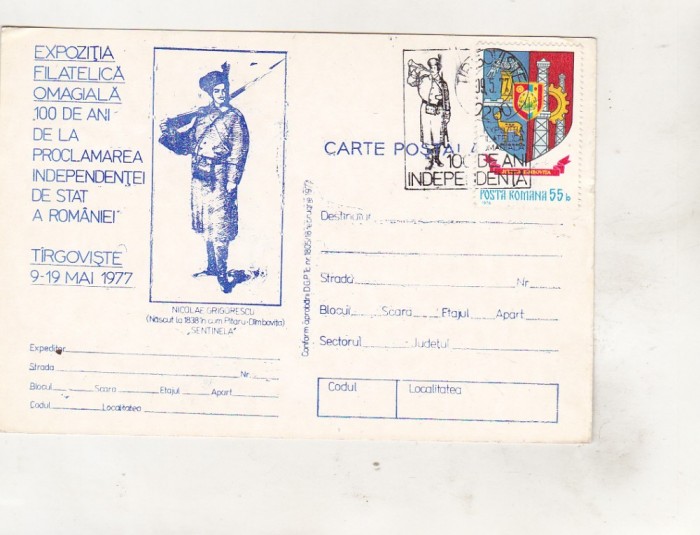 EXPOZIȚIA
FILATELICĂ
OMAGIALĂ
100 DE ANI
DE LA
PROCLAMAREA
INDEPENDENȚEI
DE STAT
A ROMÂNIEI
TÎRGOVIȘTE
9-19 MAI 1977
NICOLAE GRIGORESCU
(Născut la 1838 în com. Pitaru-Dîmbovița)
„SENTINELA"
Expeditor
Strada Nr.
Blocul Scara Etajul Apart
Codul Localitatea
CARTE POȘTALĂ
100 DE ANI
INDEPENDENȚA
POSTA ROMANA 55b
Destinatar
Strada Nr
Blocul Scara Etajul Apart
Sectorul Județul
Codul Localitatea